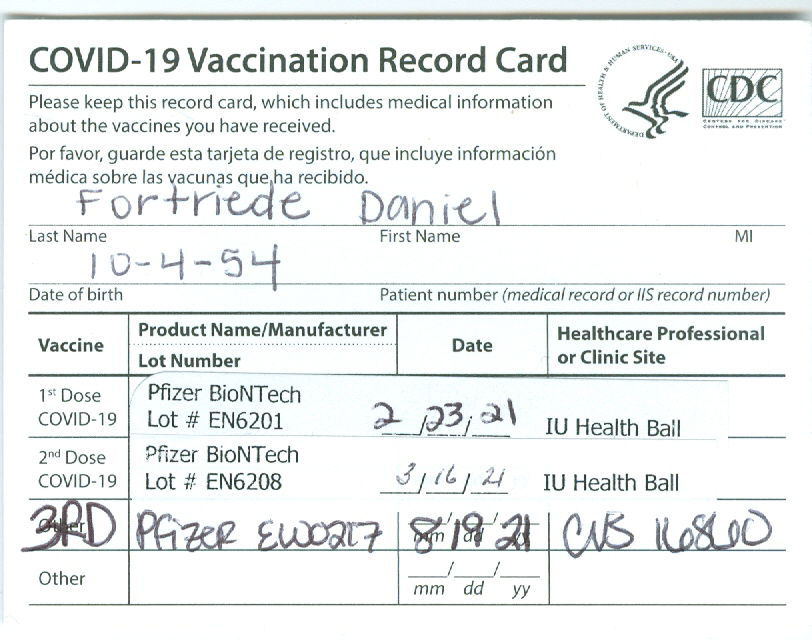 COVID-19 Vaccination Record Card
DEPARTMENT OF HEALTH & HUMAN SERVICES • USA
CDC
CENTERS FOR DISEASE
CONTROL AND PREVENTION
Please keep this record card, which includes medical information
about the vaccines you have received.
Por favor, guarde esta tarjeta de registro, que incluye información
médica sobre las vacunas que ha recibido.
Fortriede Daniel
Last Name First Name MI
10-4-54
Date of birth Patient number (medical record or IIS record number)
Vaccine Product Name/Manufacturer Lot Number Date Healthcare Professional or Clinic Site
1st Dose COVID-19 Pfizer BioNTech Lot # EN6201 2/23/21 IU Health Ball
2nd Dose COVID-19 Pfizer BioNTech Lot # EN6208 3/16/21 IU Health Ball
3RD Pfizer EW0217 8/19/21 CVS 16860
Other mm / dd / yy